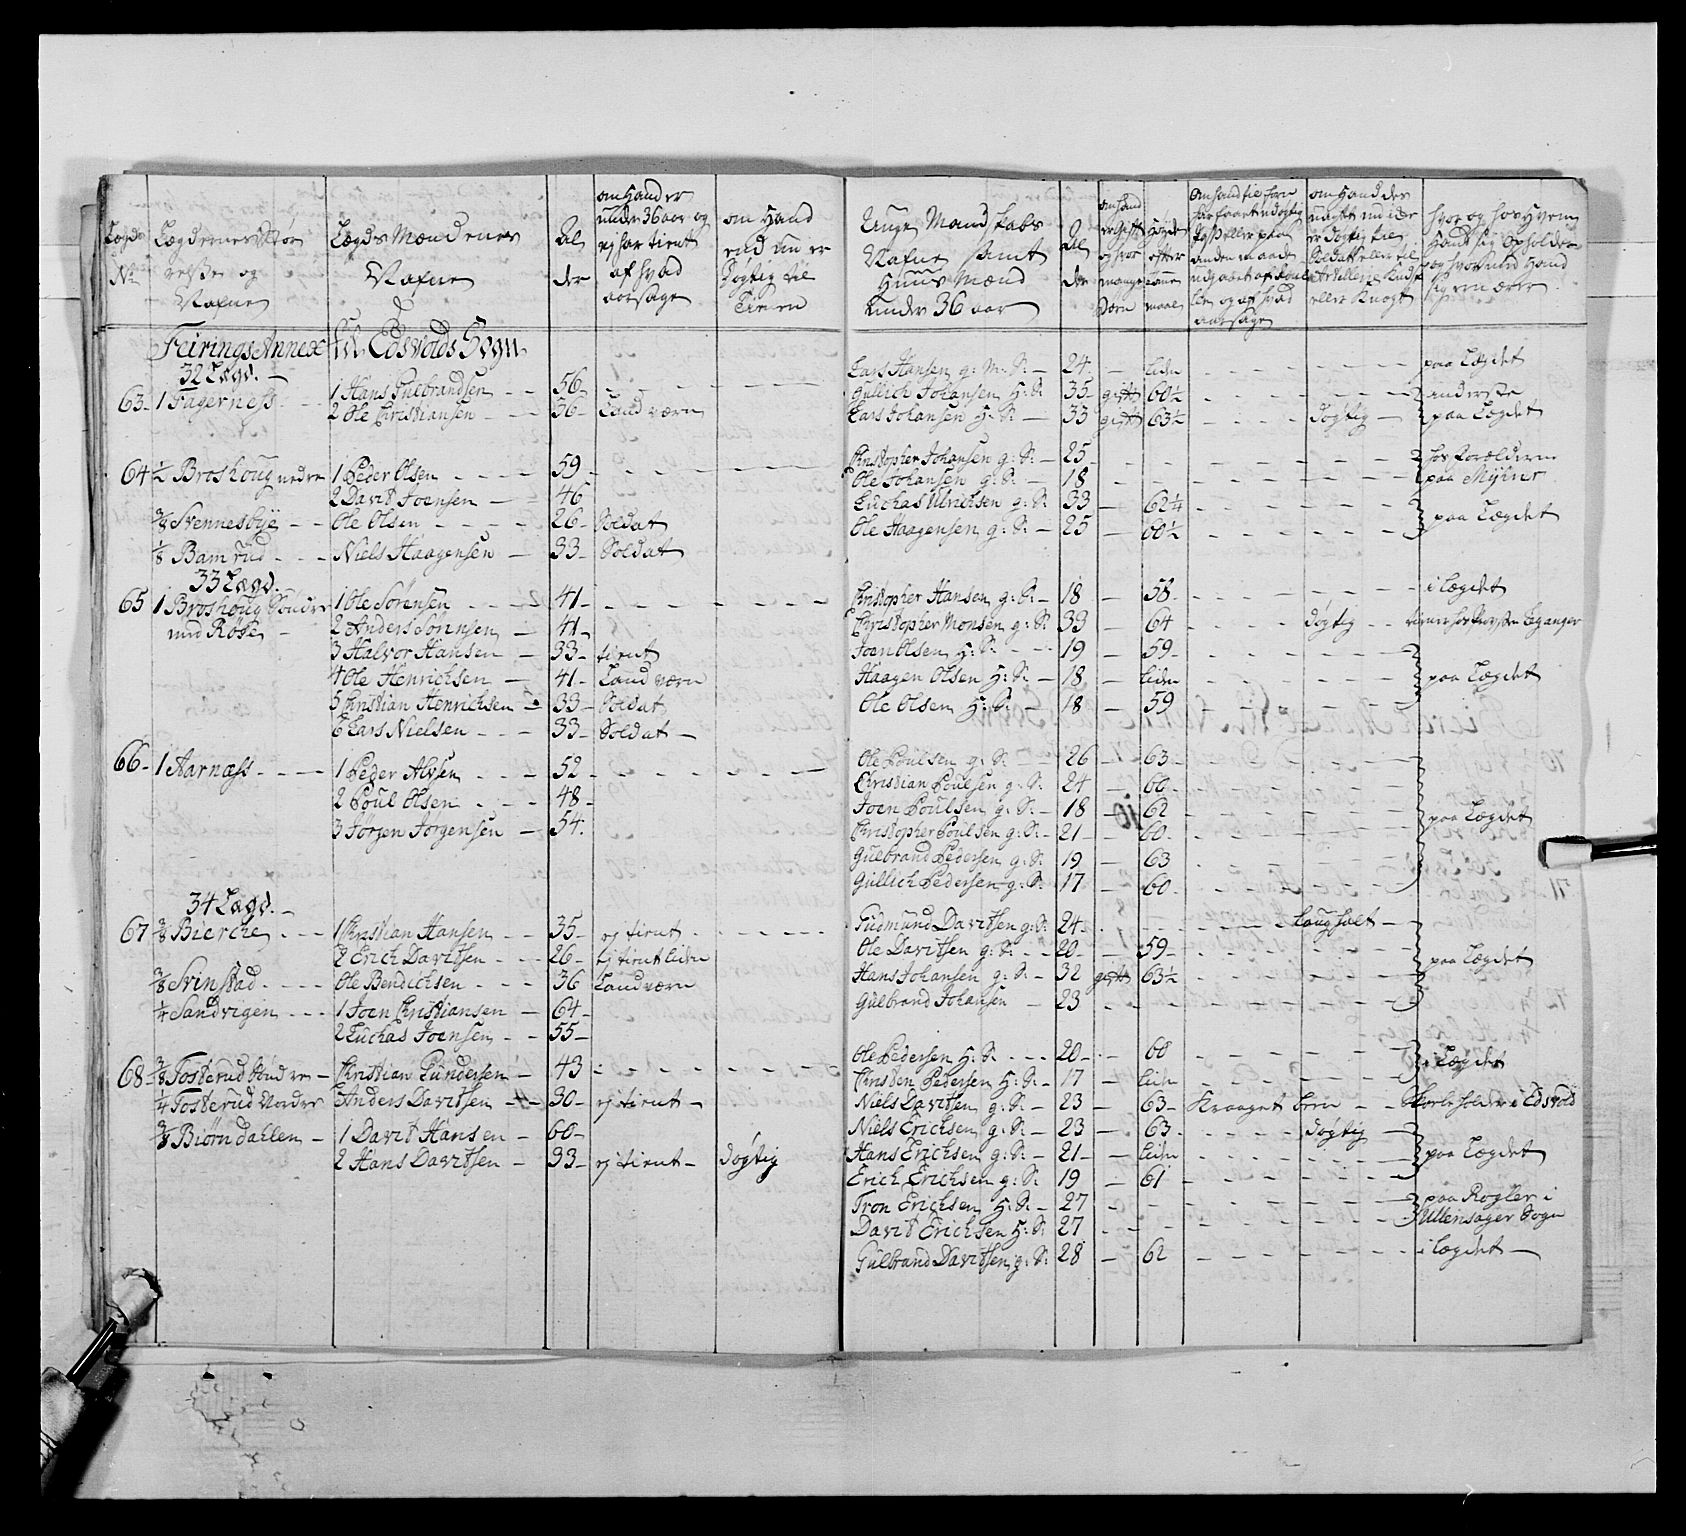 Lægdernes Stør
relse og
Nafne
Lægds Mændenes
Nafne
Al
der
om Hand er
under 36 aar og
ej har tient
af hvad
aarsage
om Hand
end nu er
Døgtig til
Tienen
Feirings Annex til Edsvolds Sogn
32 Lægd.
63 1 Fagerness 1 Hans Gulbrandsen 56
2 Ole Christiansen 36 Land værn
64 1/2 Broshoug nedre 1 Peder Olsen 59
2 David Joensen 46
3/8 Svennesbye Ole Olsen 26 Soldat
1/8 Bamrud Niels Haagensen 33 Soldat
33 Lægd.
65 1 Broshoug Søndre 1 Ole Sørensen 41
med Røise 2 Anders Sørensen 41
3 Halvor Hansen 33 tient
4 Ole Henrichsen 41 Land værn
5 Christian Henrichsen 33 Soldat
6 Lars Nielsen 33 Soldat
66 1 Aarnæss 1 Peder Alvsen 52
2 Poul Olsen 48
3 Jørgen Jørgensen 54
34 Lægd.
67 3/8 Bierche 1 Christian Hansen 35 ej tient
2 Erich Davidsen 26 ej tient liden
3/8 Svinstad Ole Bendichsen 36 Land værn
1/4 Sandvigen 1 Joen Christiansen 64
2 Luchas Joensen 55
68 3/8 Tosterud Søndre Christian Gundersen 43
1/4 Tosterud Nordre Anders Davidsen 30 ej tient
3/8 Biørndahlen 1 David Hansen 60
2 Hans Davidsen 33 ej tient døgtig
Unge Mandskabs
Nafne samt
Huus Mænd
under 36 aar
Al
der
om hand
er gift
og hvor
mange
Børn
Høyde
efter
maal
om Hand der
er døgtig til
Soldat eller til
Artillerie Kudsk
eller Knegt
hvor og hos hvem
Hand sig opholder
og hvorved Hand
sig ernærer
Lars Hansen g: M: S: 24 liden paa Lægdet
Gullich Johansen H: S: 35 gift 60 1/2 anderste
Lars Johansen H: S: 33 gift 63 1/2 døgtig paa Lægdet
Christopher Johansen g: S: 25 hos Forældrene
Ole Johansen g: S: 18 paa Myhrer
Luchas Ulrichsen g: S: 33 62 1/4
Ole Haagensen g: S: 25 60 1/2 paa Lægdet
Christopher Hansen g: S: 18 58 i Lægdet
Christopher Monsen g: S: 33 64 døgtig
Joen Olsen H: S: 19 59
Haagen Olsen H: S: 18 liden paa Lægdet
Ole Olsen H: S: 18 59
Ole Poulsen g: S: 26 63
Christian Poulsen g: S: 24 60
Joen Poulsen g: S: 18 62 paa Lægdet
Christopher Poulsen g: S: 21 60
10
Gulbrand Pedersen g: S: 19 63
Gullich Pedersen g: S: 17 60
Gudmund Davidsen g: S: 24 Laughalt
Ole Davidsen g: S: 20 59
Hans Johansen g: S: 32 gift 63 1/2 paa Lægdet
Gulbrand Johansen 23
Ole Pedersen H: S: 20 60
Christen Pedersen H: S: 17 liden i Lægdet
Niels Davidsen g: S: 23 63 Kraaget been i Edsvold
Niels Erichsen g: S: 23 63 døgtig
Hans Erichsen g: S: 21 liden paa Lægdet
Erich Erichsen g: S: 19 61
Tron Erichsen H: S: 27 paa Rogler i
David Erichsen H: S: 27 Ullensager Sogn
Gulbrand Davidsen g: S: 28 62 i Lægdet